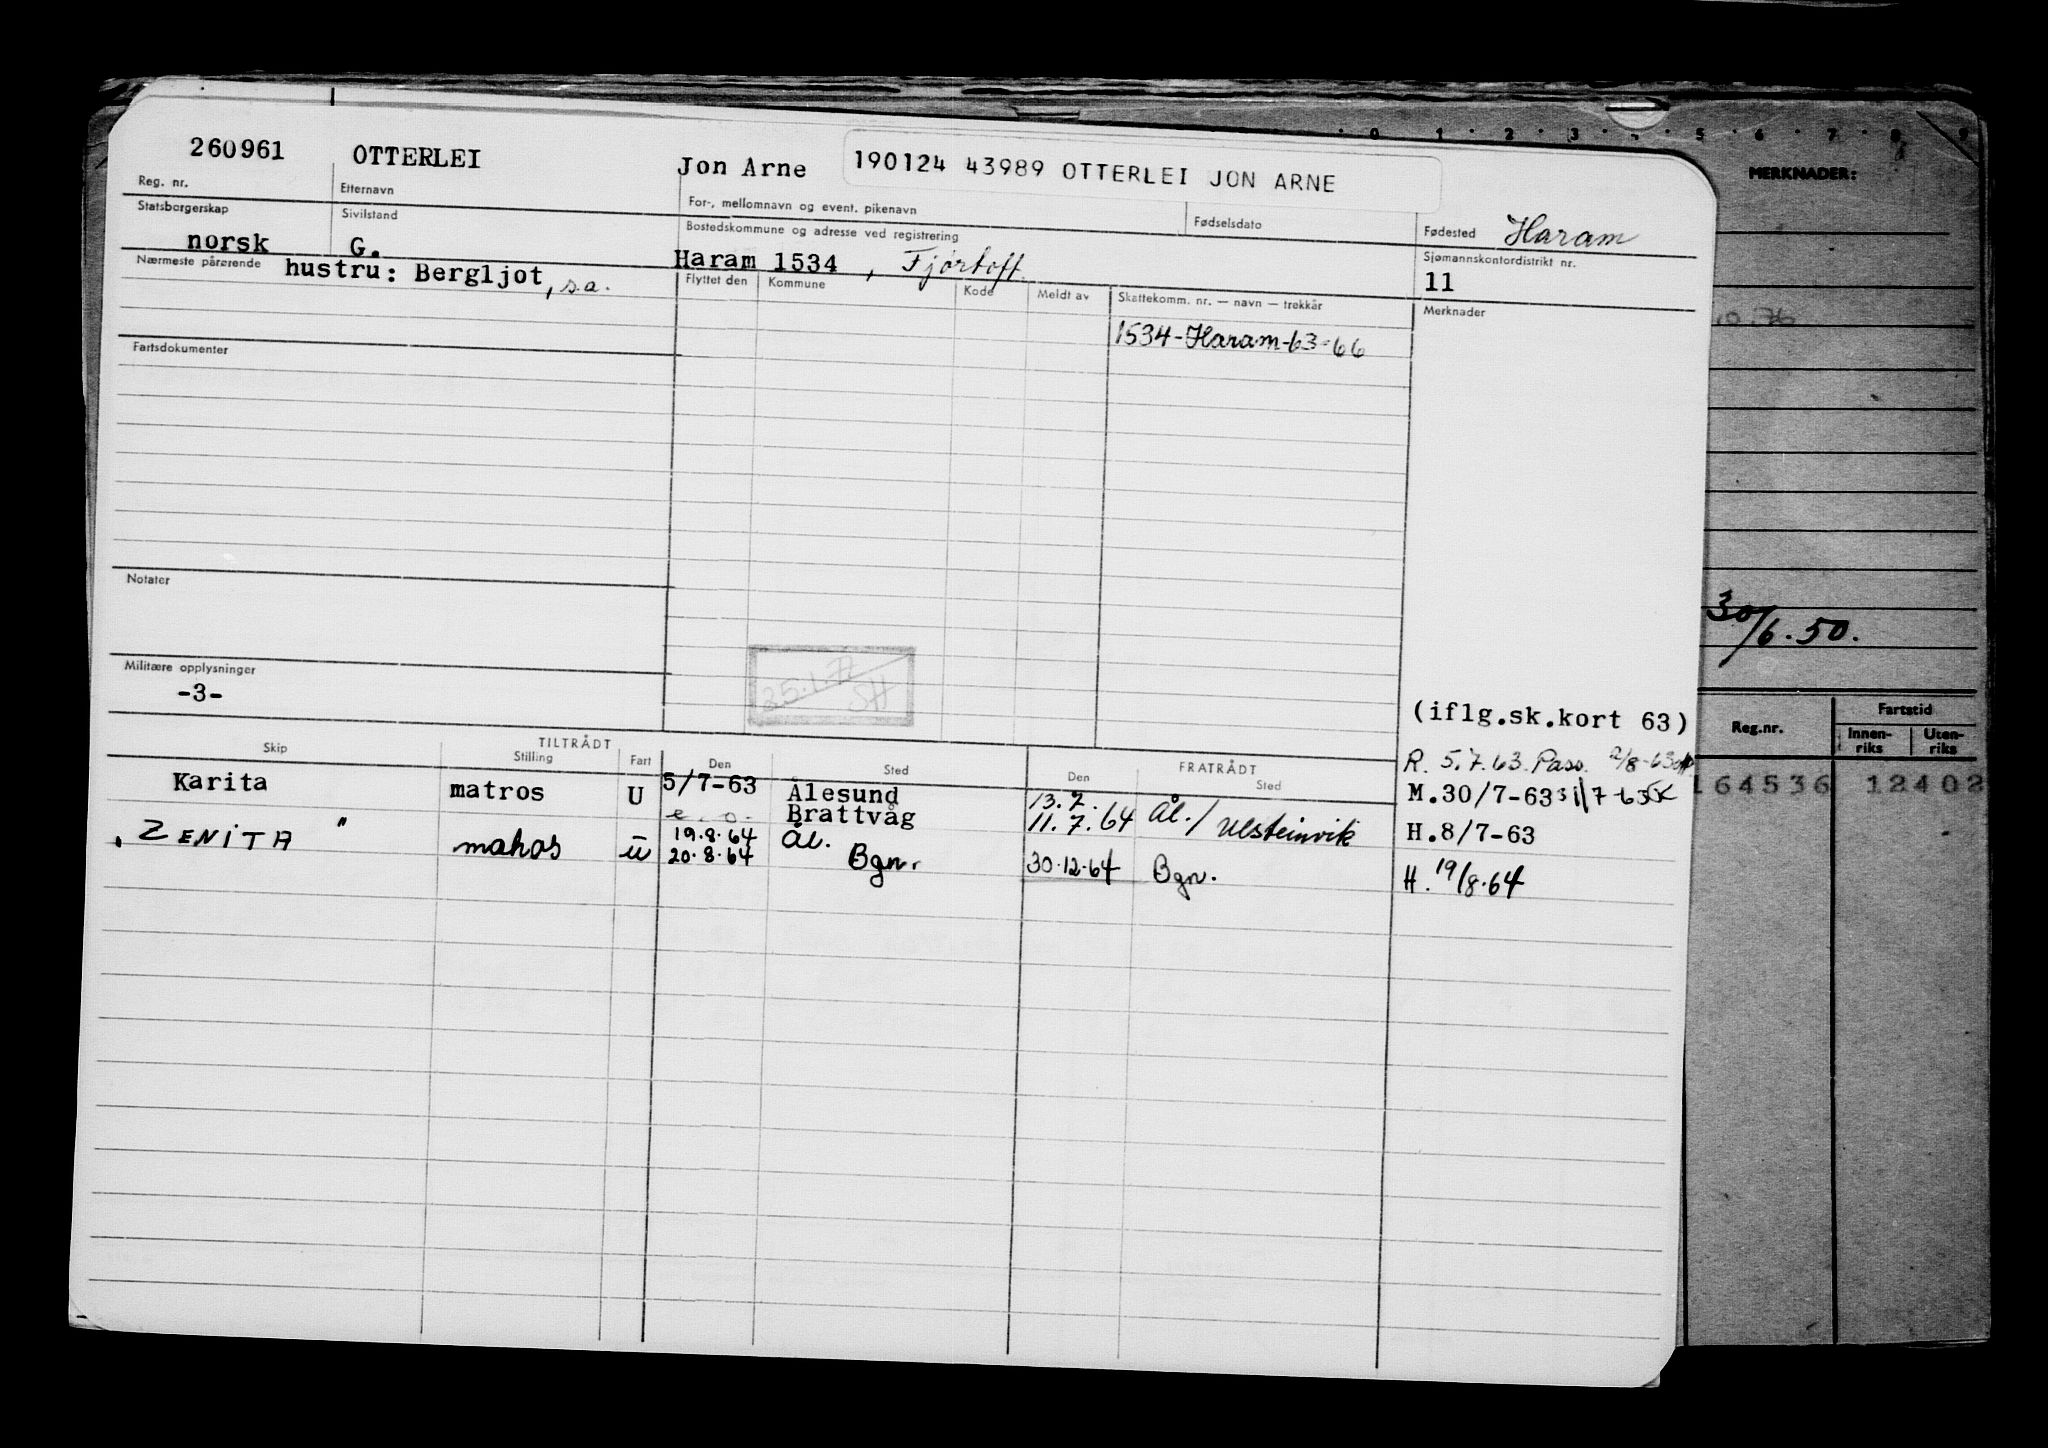 260961 OTTERLEI Jon Arne 190124 43989 OTTERLEI JON ARNE
Reg. nr. Etternavn For-, mellomnavn og event. pikenavn Fødselsdato Fødested Haram
Statsborgerskap Sivilstand Bostedskommune og adresse ved registrering Sjømannskontordistrikt nr.
norsk G. Haram 1534, Fjørtoft. 11
Nærmeste pårørende hustru: Bergljot, s.a. Flyttet den Kommune Kode Meldt av Skattekomm. nr. — navn — trekkår Merknader
1534-Haram-63-66
Fartsdokumenter
Notater
25.1.72
SH
Militære opplysninger
-3-
(iflg.sk.kort 63)
Skip TILTRÅDT Stilling Fart Den Sted Den FRATRÅDT Sted
R. 5.7.63. Pass. 2/8-63
Karita matros U 5/7-63 Ålesund 13.7. Ål./ M.30/7-63 31/7-63
e. o. Brattvåg 11.7.64 Ulsteinvik H.8/7-63
"ZENITA" matros u 19.8.64 Ål.
20.8.64 Bgn. 30.12.64 Bgn. H. 19/8.64
0 1 2 3 4 5 6 7 8 9
MERKNADER:
30/6.50.
Reg.nr. Fartstid
Innen-riks Uten-riks
164536 12402